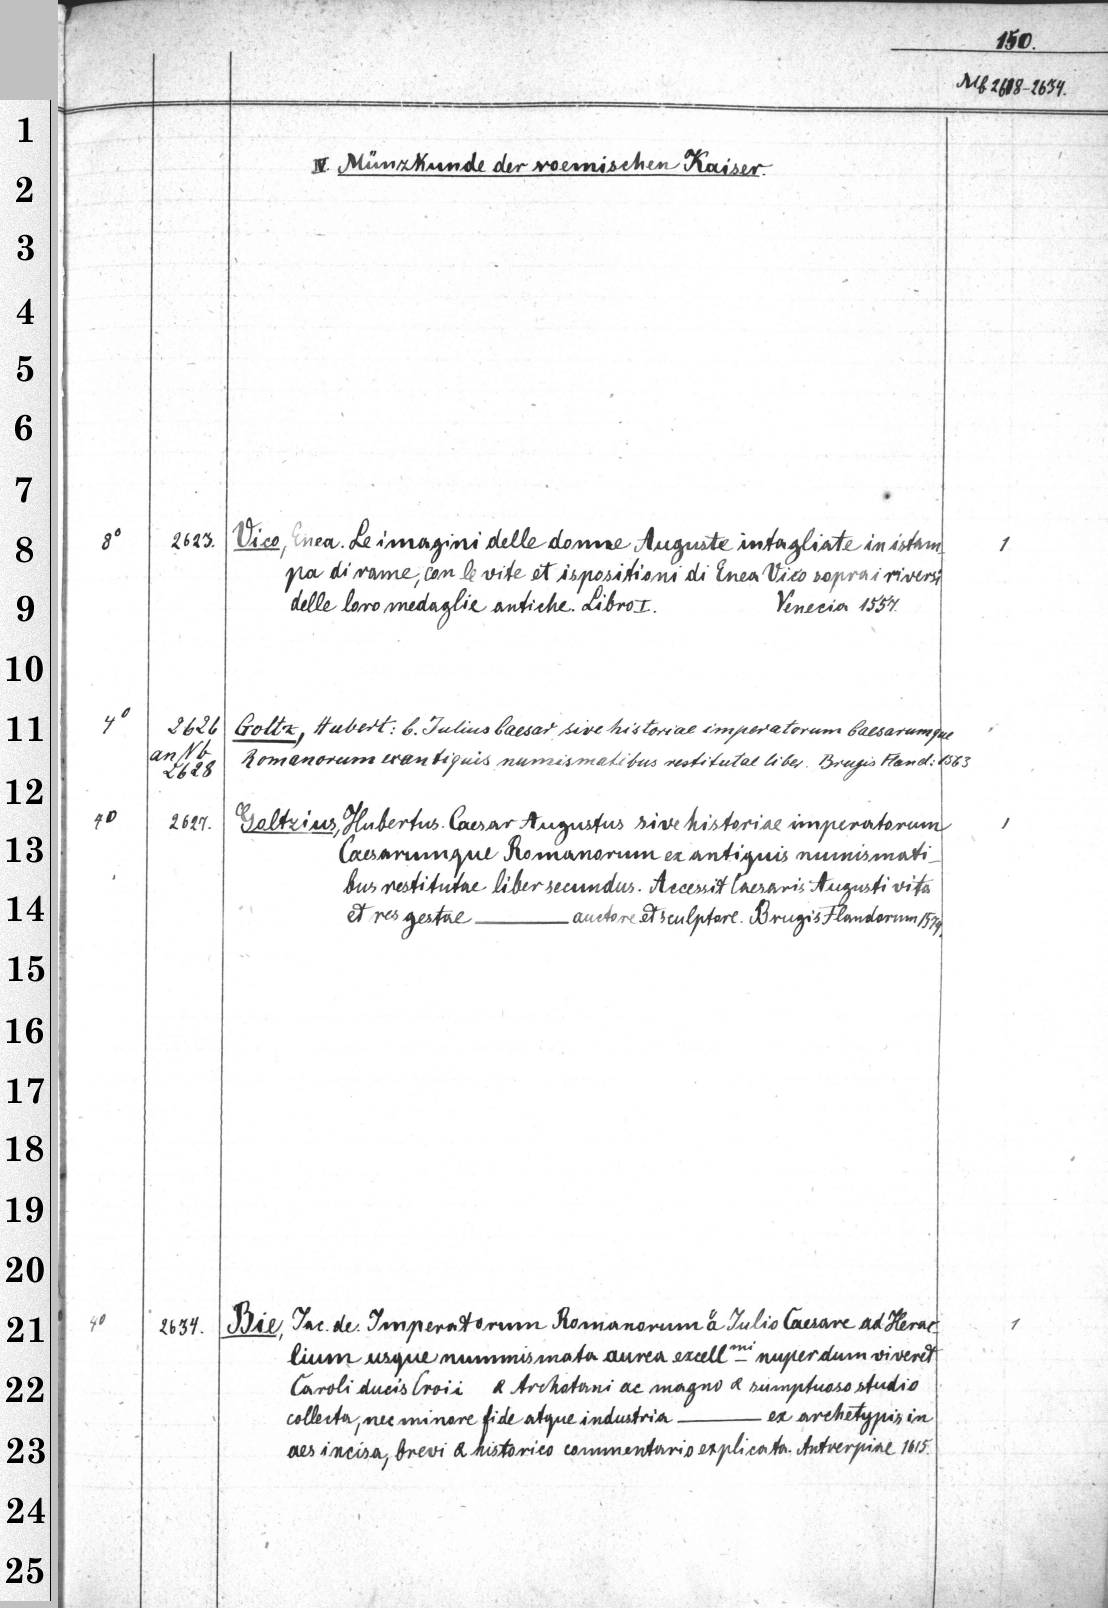 150.
Mb 2618-2634.
1
IV. Münzkunde der roemischen Kaiser.
2
3
4
5
6
7
8
8° 2623. Vico, Enea. Le imagini delle donne Auguste intagliate in istam- 1
pa di rame, con le vite et ispositioni di Enea Vico sopra i riversi
9
delle loro medaglie antiche. Libro I. Venecia 1557.
10
11
4° 2626 Goltz, Hubert: C. Iulius Caesar sive historiae imperatorum Caesarumque
an Nb Romanorum ex antiquis numismatibus restitutae liber. Brugis Fland: 1563
2628
12
4° 2627. Goltzius, Hubertus. Caesar Augustus sive historiae imperatorum 1
13
Caesarumque Romanorum ex antiquis numismati-
bus restitutae liber secundus. Accessit Caesaris Augusti vita
14
et res gestae ——— auctore et sculptore. Brugis Flandorum 1574.
15
16
17
18
19
20
21
4° 2634. Bie, Iac. de. Imperatorum Romanorum à Iulio Caesare ad Herac- 1
lium usque nummismata aurea excell mi nuper dum viveret
22
Caroli ducis Croii & Archotani ac magno & sumptuoso studio
collecta, nec minore fide atque industria ——— ex archetypis in
23
aes incisa, brevi & historico commentario explicata. Antverpiae 1615.
24
25